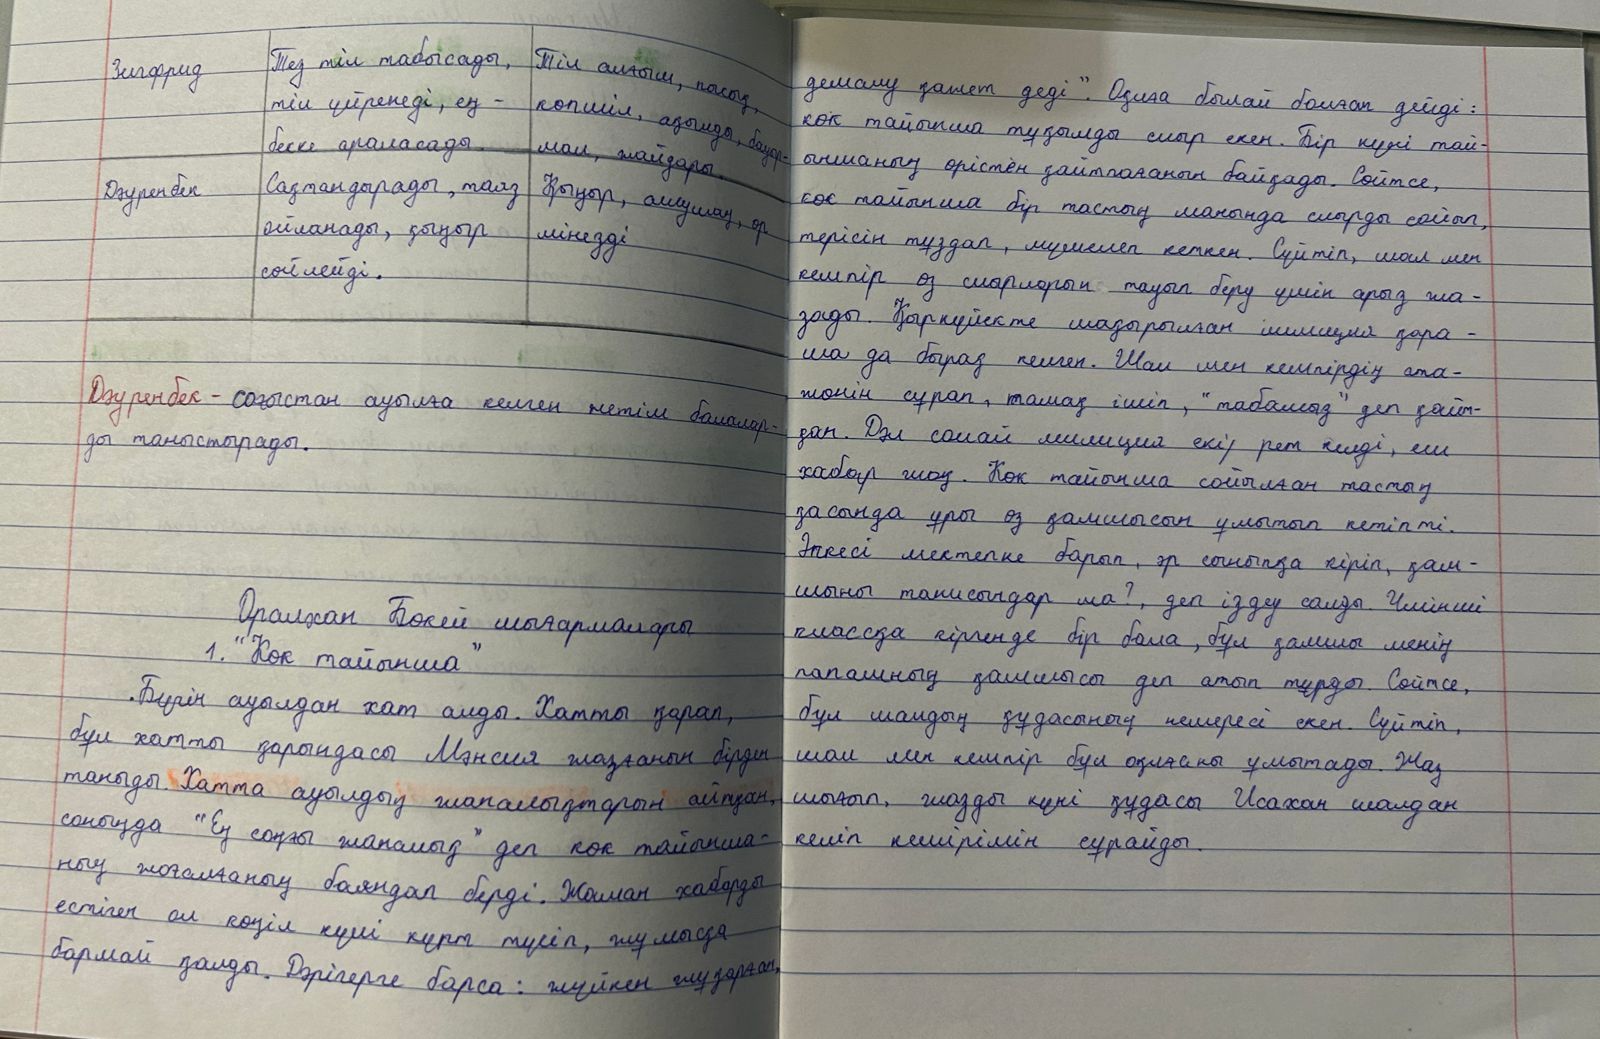 Зигфрид
Тез тіл табысады,
тіл үйренеді, ең-
бекке араласады.
Тіл алғыш, пысық,
көпшіл, ақылды, бауыр-
мал, жайдары.
Дәуренбек
Сақтандырады, таяз
ойланады, қыңыр
сөйлейді.
Қыңыр, ашушаң, өр
мінезді
Дәуренбек - соғыстан ауылға келген жетім балалар-
ды таныстырады.
Оралхан Бөкей шығармалары
1. "Көк тайынша"
Бүгін ауылдан хат алды. Хатты қарап,
бұл хатты қарындасы Мәнсия жазғанын бірден
таныды. Хатта ауылдың жаңалықтарын айтқан,
соңында "Ең соңғы жаңалық" деп көк тайынша-
ның жоғалғанын баяндап берді. Жаман хабарды
естіген ол көңіл күйі күрт түсіп, жұмысқа
бармай қалды. Дәрігерге барса: жүйкең жұқарған,
демалу қажет деді". Оқиға былай болған дейді:
көк тайынша тұқымды сиыр екен. Бір күні тай-
ыншаның өрістен қайтпағанын байқады. Сөйтсе,
көк тайынша бір тастың жанында сиырды сойып,
терісін тұздап, мүшелеп кеткен. Сүйтіп, шал мен
кемпір өз сиырларын тауып беру үшін арыз жа-
зады. Қыркүйекте шақырылған милиция қара-
ша да бірақ келген. Шал мен кемпірдің аты-
жөнін сұрап, тамақ ішіп, "табамыз" деп қайт-
қан. Дәл солай милиция екі рет келді, еш
хабар жоқ. Көк тайынша сойылған тастың
қасында ұры өз қамшысын ұмытып кетіпті.
Әпкесі мектепке барып, әр сыныпқа кіріп, қам-
шыны танисыңдар ма?, деп іздеу салды. Үшінші
классқа кіргенде бір бала, бұл қамшы менің
папамның қамшысы деп атып тұрды. Сөйтсе,
бұл шалдың құдасының немересі екен. Сүйтіп,
шал мен кемпір бұл оқиғаны ұмытады. Жаз
шығып, жазды күні құдасы Исахан шалдан
келіп кешірімін сұрайды.